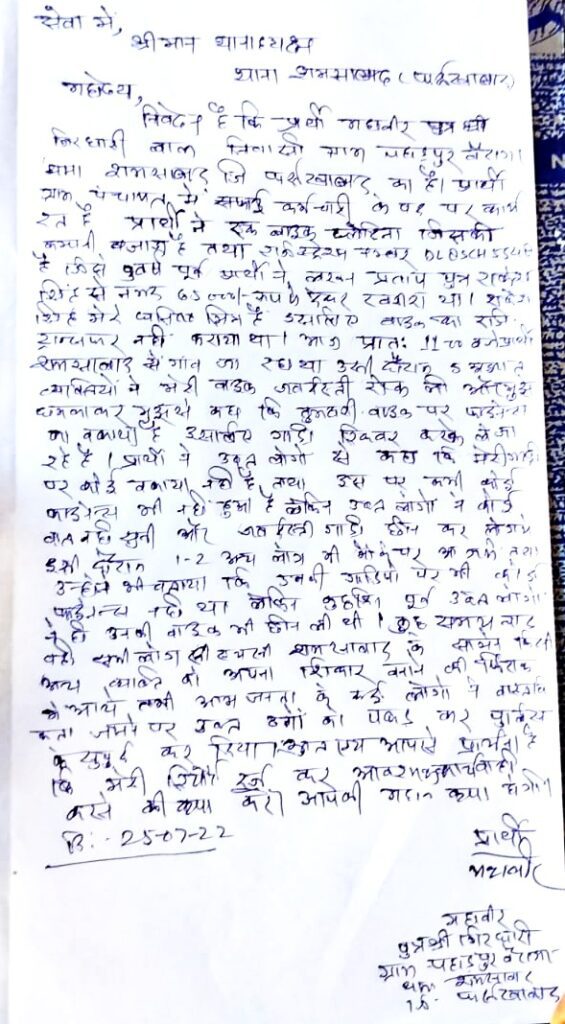 सेवा में,
श्रीमान थानाध्यक्ष
थाना शमसाबाद (फर्रुखाबाद)
महोदय,
निवेदन है कि प्रार्थी महावीर पुत्र श्री
गिरधारी लाल निवासी ग्राम पहाडपुर बैरागर
थाना शमसाबाद जि फर्रुखाबाद का है। प्रार्थी
ग्राम पंचायत में सफाई कर्मचारी के पद पर कार्य
रत है प्रार्थी ने एक बाइक प्लेटिना जिसकी
कम्पनी बजाज है तथा नम्बर
है जिसे पूर्व प्रार्थी ने प्रताप पुत्र राकेश
सिंह से नगद रूपये देकर खरीदा था। राकेश
सिंह मेरे मित्र है इसलिए बाइक का
नही कराया था। आज प्रातः 11-00 बजे प्रार्थी
शमसाबाद से गांव जा रहा था उसी दौरान 5 अज्ञात
व्यक्तियों ने मेरी बाइक जबर्दस्ती रोक ली और मुझे
धमकाकर मुझसे कहा कि तुम्हारी बाइक पर फाईनेन्स
का बकाया है इसलिए गाडी रिकवर करके ले जा
रहे है। प्रार्थी ने उक्त लोगो से कहा कि मेरी गाडी
पर कोई बकाया नही है तथा उस पर कभी कोई
फाईनेन्स भी नही हुआ है लेकिन उक्त लोगो ने कोई
बात नही सुनी और जबर्दस्ती गाडी छीन कर ले गये
इसी दौरान 1-2 अन्य लोग भी मौके पर आ गये तथा
उन्होने भी बताया कि उनकी गाडियो पर भी कोई
फाईनेन्स नही था लेकिन कुछ दिन पूर्व उक्त लोगो
ने ही उनकी बाइक भी छीन ली थी। कुछ समय बाद
वही सभी लोग शमसाबाद के सामने किसी
अन्य व्यक्ति को अपना शिकार बनाने की फिराक
मे आये तभी आम जनता के कई लोगो ने
जमा पर उक्त ठगों को पकड कर पुलिस
के सुपुर्द कर दिया। अतः आपसे प्रार्थना है
कि मेरी रिपोर्ट दर्ज कर आवश्यक कार्यवाही
करने की कृपा करें। आपकी महान कृपा होगी।
दि:- 25-07-22
प्रार्थी
महावीर
महावीर
पुत्र श्री गिरधारी
ग्राम पहाडपुर बैरागर
थाना शमसाबाद
जि. फर्रुखाबाद